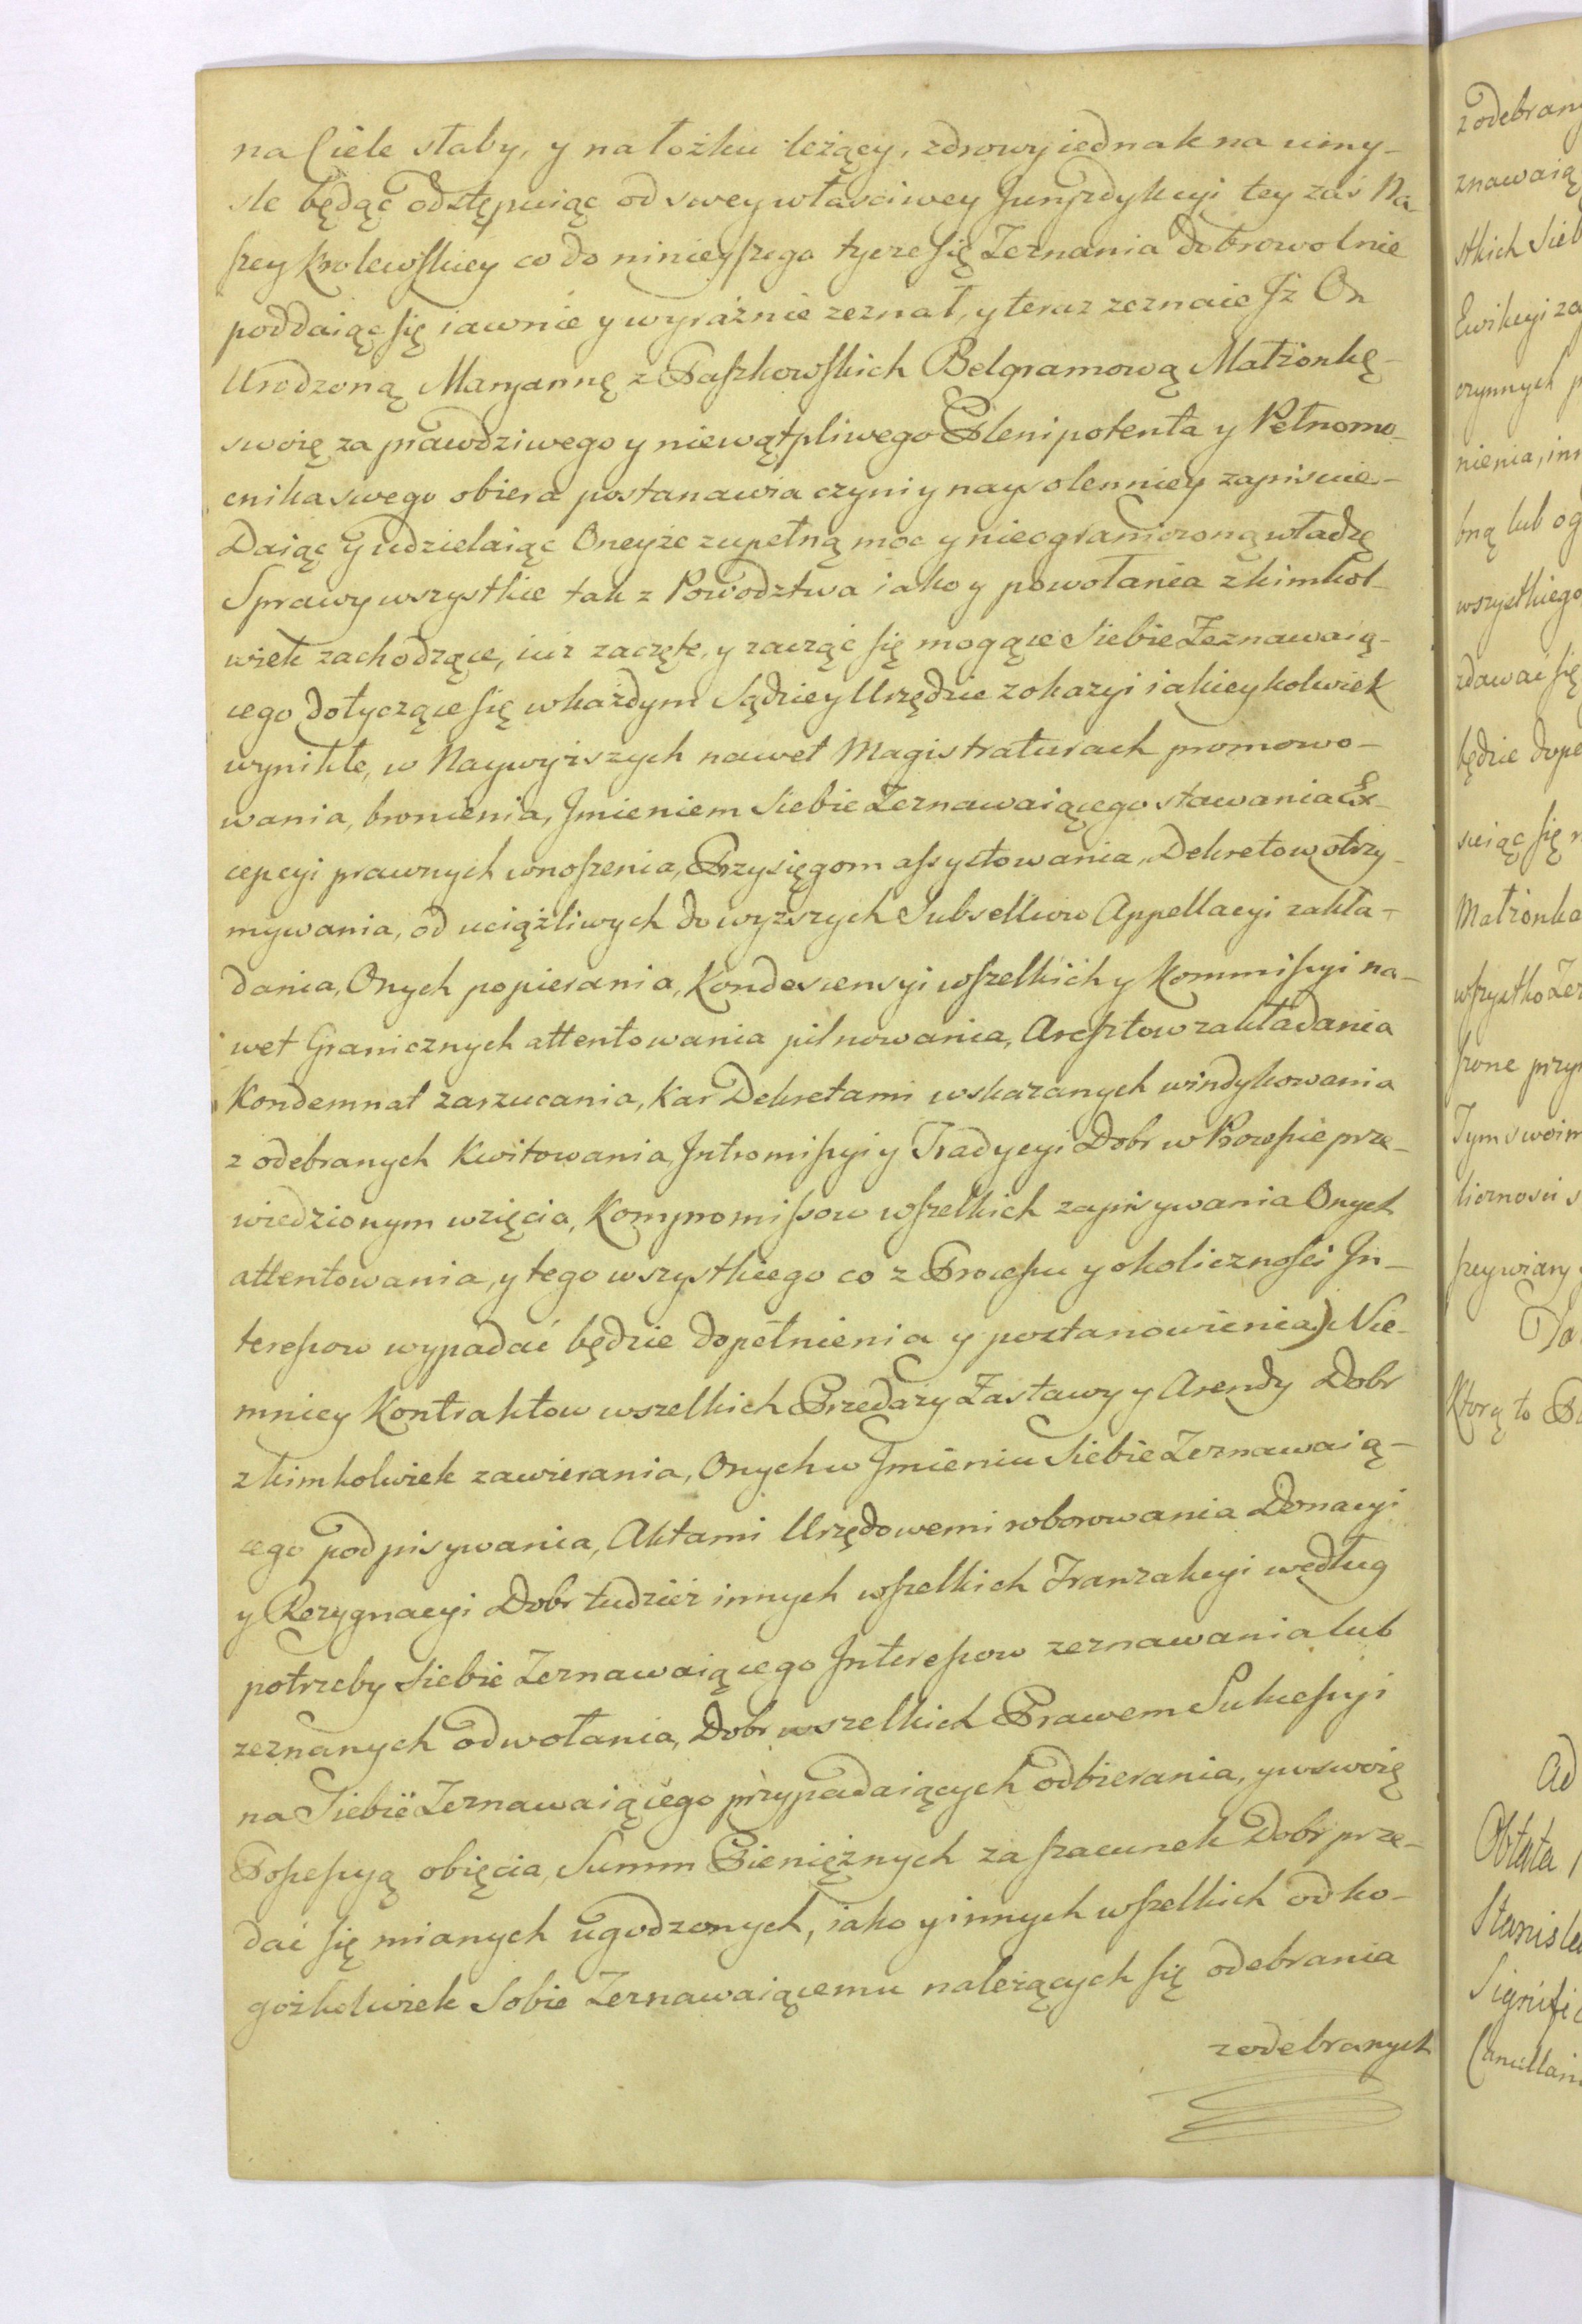 na Ciele słaby, y na łożku leżący, zdrowy iednak na umy-
sle będąc odstępuiąc od swey własciwey Juryzdykcyi tey zaś Na-
szey Krolewskiey co do ninieyszego tycze się Zeznania dobrowolnie
poddaiąc się iawnie y wyraźnie zeznał, y teraz zeznaie Iż On
Urodzoną Maryannę z Paszkowskich Belgramową Małżonkę
swoię za prawdziwego y niewątpliwego Plenipotenta y Pełnomo-
cnika swego obiera postanawia czyni y naysolenniey zapisuie-
Daiąc y udzielaiąc Oneyże zupełną moc y nieograniczoną władzę
Sprawy wszystkie tak z Powodztwa iako y powołania z kimkol-
wiek zachodzące, iuż zaczęte, y zacząć się mogące Siebie Zeznawaią-
cego dotyczące się w każdym Sądzie y Urzędzie z okazyi iakieykolwiek
wynikłe, w Naywyższych nawet Magistraturach promowo-
wania, bronienia, Jmieniem Siebie Zeznawaiącego stawania Ex-
cepcyi prawnych wnoszenia, Przysięgom assystowania, Dekretow otrzy-
mywania, od uciążliwych do wyższych Subselliow Appellacyi zakła-
dania, Onych popierania, Kondescensyi wszelkich y Kommissyi na-
wet Granicznych attentowania pilnowania, Aresztow zakładania
Kondemnat zarzucania, Kar Dekretami wskazanych windykowania
z odebranych Kwitowania, Intromissyi y Tradycyi Dobr w Prowsie prze-
wiedzionym wzięcia, Kompromissow wszelkich zapisywania Onych
attentowania, y tego wszystkiego co z Processu y okoliczności In-
teressow wypadać będzie dopełnienia y postanowienia) Nie-
mniey Kontraktow wszelkich Przedaży Zastawy y Arendy Dobr
z kimkolwiek zawierania, Onych w Jmieniu Siebie Zeznawaią-
cego podpisywania, Aktami Urzędowemi roborowania Donacyi
y Rezygnacyi Dobr tudzież innych wszelkich Tranzakcyi według
potrzeby Siebie Zeznawaiącego Interessow zeznawania lub
zeznanych odwołania, Dobr wszelkich Prawem Sukcessyi
na Siebie Zeznawaiącego przypadaiących odbierania, y w swoię
Possessyą obięcia, Summ Pieniężnych za szacunek Dobr prze-
dać się mianych ugodzonych, iako y innych wszelkich od ko-
gożkolwiek Sobie Zeznawaiącemu należących się odebrania
z odebranych
z odebrany
znawaią
stkich Sieb
Ewikcyi za
czynnych p
nienia, inn
bną lub og
wszystkiego
zdawać się
będzie dope
suiąc się
Małżonka
wszystko Zez
szone przy
Tym swoim
liczności s
szey wiary
Ktorą to
Ad
Oblata
Stanisla
Signific
Cancellari